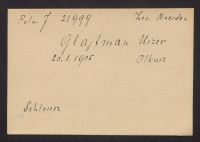 Poln. J. 21999 Zes. Dresden
Glajtman Uszer
20.1.1905 Olkusz
Schlosser